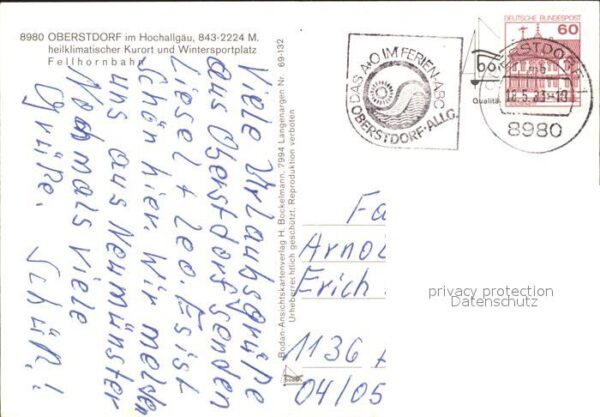 8980 OBERSTDORF im Hochallgäu, 843-2224 M.
heilklimatischer Kurort und Wintersportplatz
Fellhornbahn
Viele Urlaubsgrüße
aus Oberstdorf senden
Liesel + Leo. Es ist
schön hier. Wir melden
uns aus Neumünster
Nochmals viele
Grüße. Tschüß!
Bodan-Ansichtskartenverlag H. Bockelmann, 7994 Langenargen Nr. 69-132
Urheberrechtlich geschützt. Reproduktion verboten
DAS A+O IM FERIEN-ABC
OBERSTDORF·ALLG.
DEUTSCHE BUNDESPOST
60
OBERSTDORF 1
mb
8980
bo
Qualitä
Fa
Arno
Erich
1136
04/05
privacy protection
Datenschutz